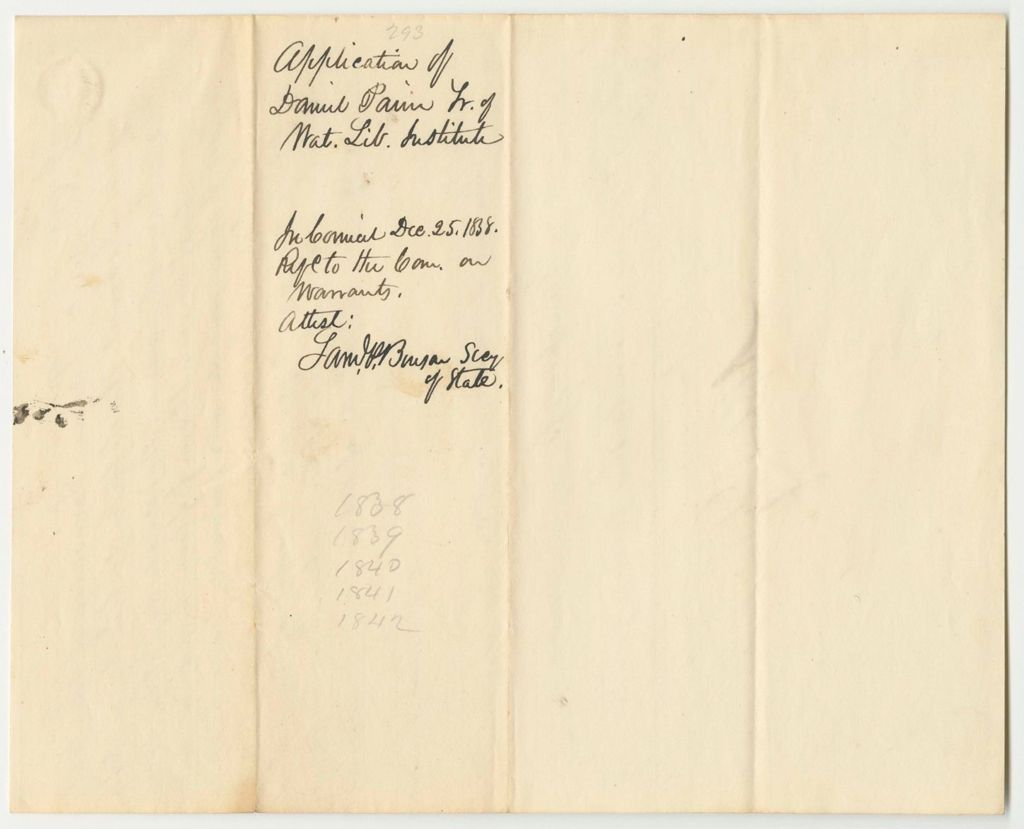 293
Application of
Daniel Paine Tr. of
Wat. Lib. Institute
In Council Dec. 25. 1838.
Ref'd to the Com. on
Warrants.
Attest:
Saml. P. Benson Secy
of State.
1838
1839
1840
1841
1842